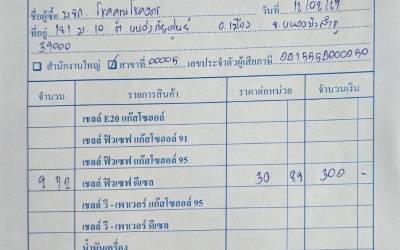 ชื่อผู้ซื้อ วันที่ 12/02/67
ที่อยู่ 191 ม.10 ต. อ.เมือง จ.หนองบัวลำภู
39000
สำนักงานใหญ่ สาขาที่ 00005 เลขประจำตัวผู้เสียภาษี
จำนวน รายการสินค้า ราคาต่อหน่วย จำนวนเงิน
เชลล์ E20 แก๊สโซฮอล์
เชลล์ ฟิวเซฟ แก๊สโซฮอล์ 91
เชลล์ ฟิวเซฟ แก๊สโซฮอล์ 95
เชลล์ ฟิวเซฟ ดีเซล 30 89 300 -
เชลล์ วี - เพาเวอร์ แก๊สโซฮอล์ 95
เชลล์ วี - เพาเวอร์ ดีเซล
น้ำมันเครื่อง